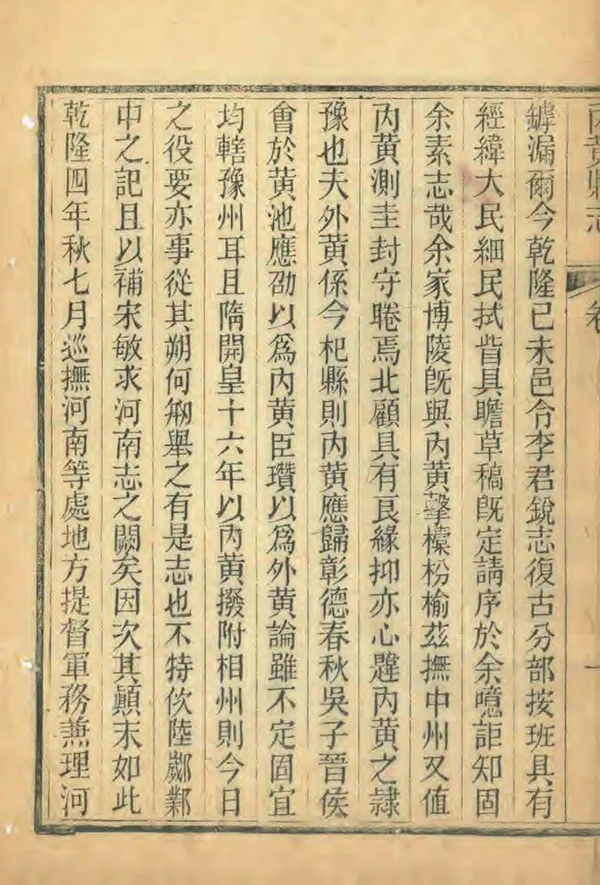 內黃縣志
卷
一
罅漏爾今乾隆已未邑令李君銳志復古分部按班具有
經緯大民細民拭眥具瞻草稿旣定請序於余噫詎知固
余素志哉余家博陵旣與內黃擊檬枌榆茲撫中州又值
內黃測圭封守睠焉北顧具有良緣抑亦心韙內黃之隷
豫也夫外黃係今杞縣則內黃應歸彰德春秋吳子晉侯
會於黃池應劭以爲內黃臣瓚以爲外黃論雖不定固宜
均轄豫州耳且隋開皇十六年以內黃撥附相州則今日
之役要亦事從其朔何剏舉之有是志也不特佽陸鄺鄴
中之記且以補宋敏求河南志之闕矣因次其顚末如此
乾隆四年秋七月巡撫河南等處地方提督軍務兼理河